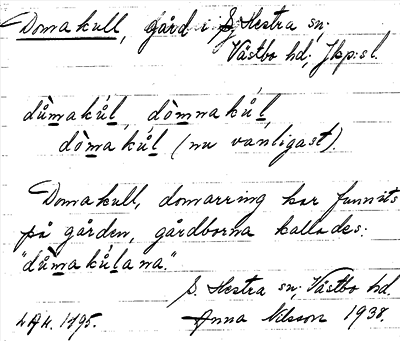 Domakull, gård i S. Hestra sn;
Västbo hd; Jkp:sl.
dùmakúl, dòmnakúl,
dòmakúl (nu vanligast).
Domakull, domarring har funnits
på gården, gårdborna kallades:
"dùmakúlana."
S. Hestra sn; Västbo hd.
Anna Nilsson 1938.
LAH. 1795.